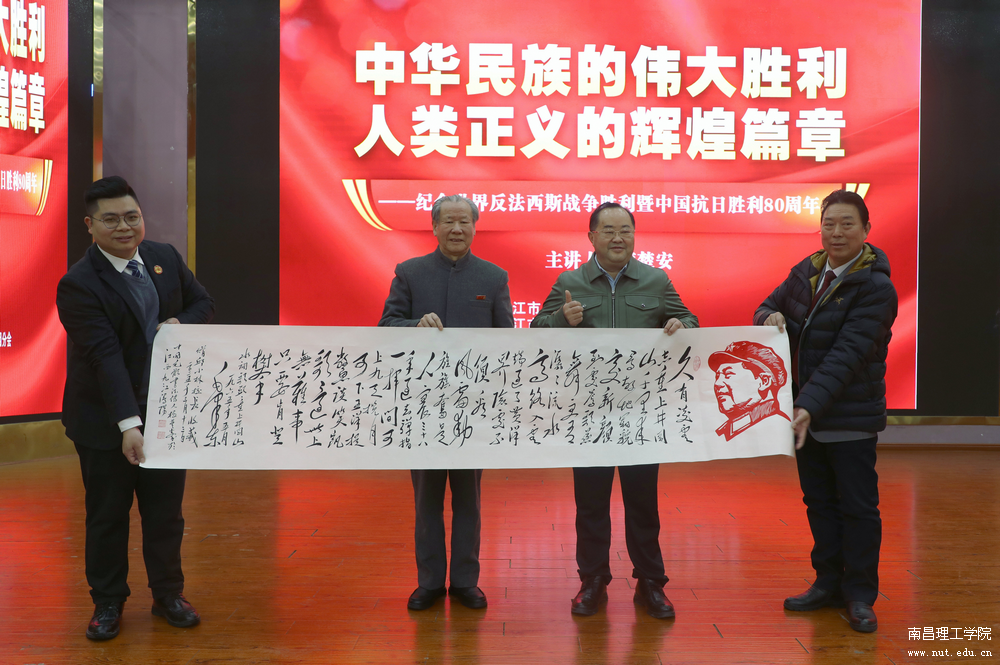 大胜利
煌篇章
日胜利80周年
分会
中华民族的伟大胜利
人类正义的辉煌篇章
——纪念世界反法西斯战争胜利暨中国抗日胜利80周年
主讲人
楚安
江市
江
久有凌云
志重上井冈
山千里来
寻故地旧貌
变新颜
到处莺歌燕
舞更有
潺潺流水
高路入云
端过了黄洋
界险处不
须看
风雷动
旌旗奋是
人寰三十八
年过去弹指
一挥间可
上九天揽月
可下五洋捉
鳖谈笑凯
歌还世上
無難事
只要肯登
攀
水调歌头重上井冈山
一九六五年五月
毛泽东
南昌理工学院
www.nut.edu.cn